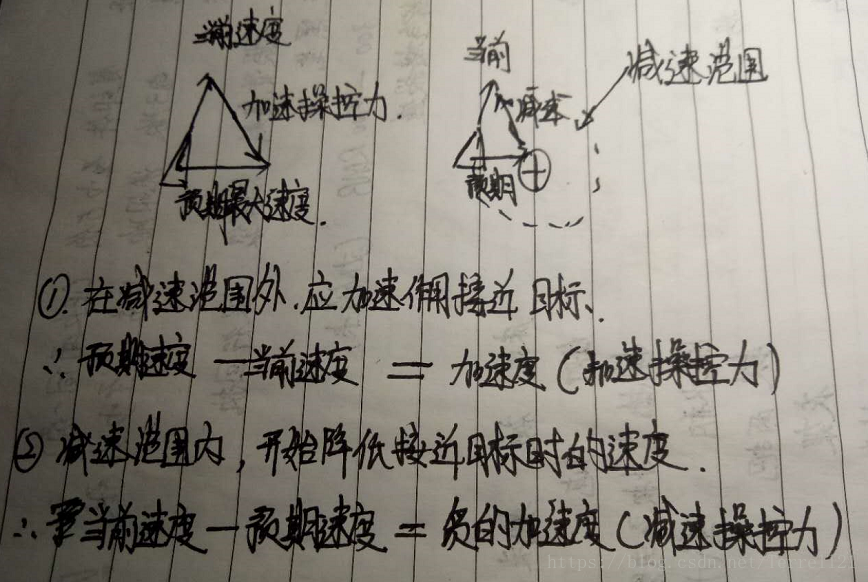 当前速度
加速操控力.
预期最大速度.
当前
减速
减速范围
预期
① 在减速范围外,应加速作用接近目标、
∴ 预期速度 — 当前速度 = 加速度 (加速操控力)
② 减速范围内, 开始降低接近目标时的速度.
∴ 当前速度 — 预期速度 = 负的加速度 (减速操控力)